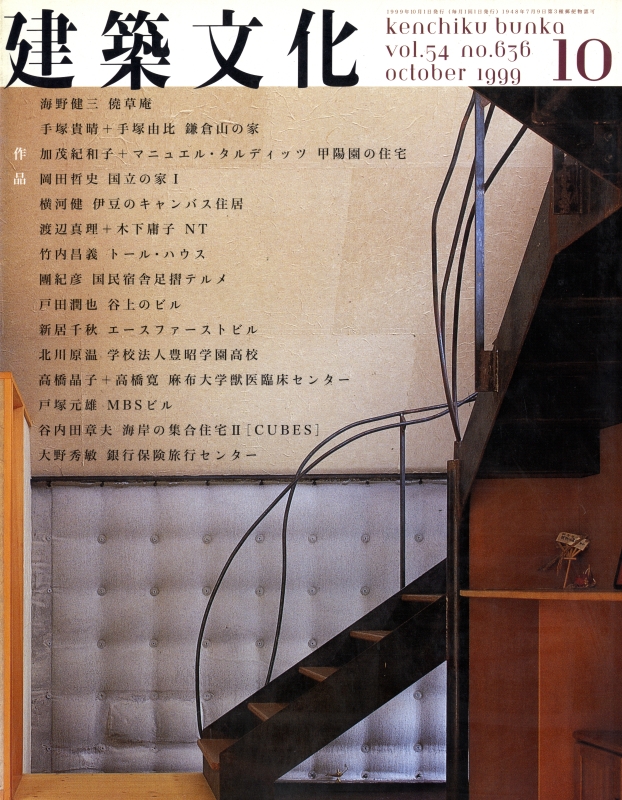 建築文化
1999年10月1日発行(毎月1回1日発行) 1948年7月9日第3種郵便物認可
kenchiku bunka
vol.54 no.636
october 1999
10
作品
海野健三 僥草庵
手塚貴晴+手塚由比 鎌倉山の家
加茂紀和子+マニュエル・タルディッツ 甲陽園の住宅
岡田哲史 国立の家I
横河健 伊豆のキャンバス住居
渡辺真理+木下庸子 NT
竹内昌義 トール・ハウス
團紀彦 国民宿舎足摺テルメ
戸田潤也 谷上のビル
新居千秋 エースファーストビル
北川原温 学校法人豊昭学園高校
高橋晶子+高橋寛 麻布大学獣医臨床センター
戸塚元雄 MBSビル
谷内田章夫 海岸の集合住宅II[CUBES]
大野秀敏 銀行保険旅行センター